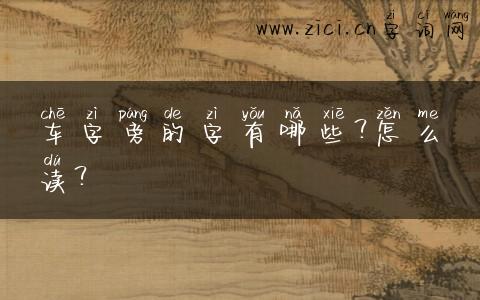 zì cí wǎng
www.zici.cn字词网
chē zì páng de zì yǒu nǎ xiē zěn me
车字旁的字有哪些?怎么
dú
读?